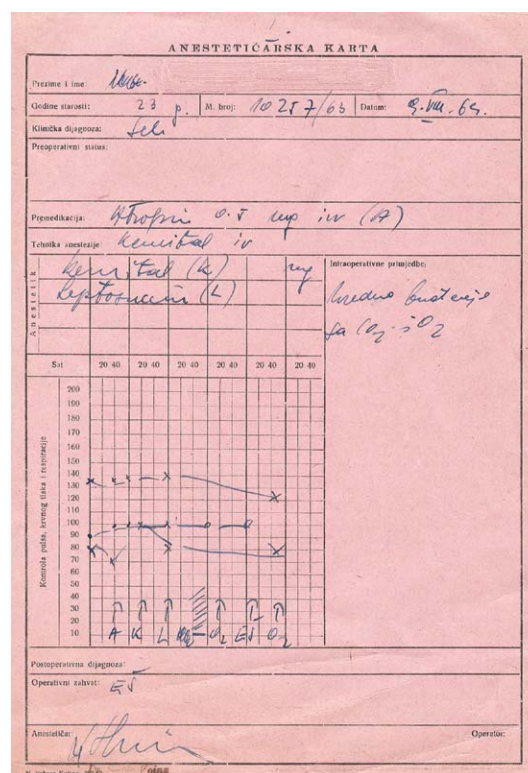 ANESTETIČARSKA KARTA
Prezime i ime:
Godine starosti: 23 g. M. broj: 10257/63 Datum: 9. VIII. 63.
Klinička dijagnoza: Sch
Preoperativni status:
Premedikacija: Atropin 0.5 mg iv (A)
Tehnika anestezije: Kemital iv
Anestetik
Kemital (K) mg
Leptosuccin (L)
Intraoperativne primjedbe:
buđenje
sa CO2 i O2
Sat 20 40 20 40 20 40 20 40 20 40
Kontrola pulsa, krvnog tlaka i respiracije
200
190
180
170
160
150
140
130
120
110
100
90
80
70
60
50
40
30
20
10
A K L O2 EŠ O2
Postoperativna dijagnoza:
Operativni zahvat: EŠ
Anestetičar:
Operator: